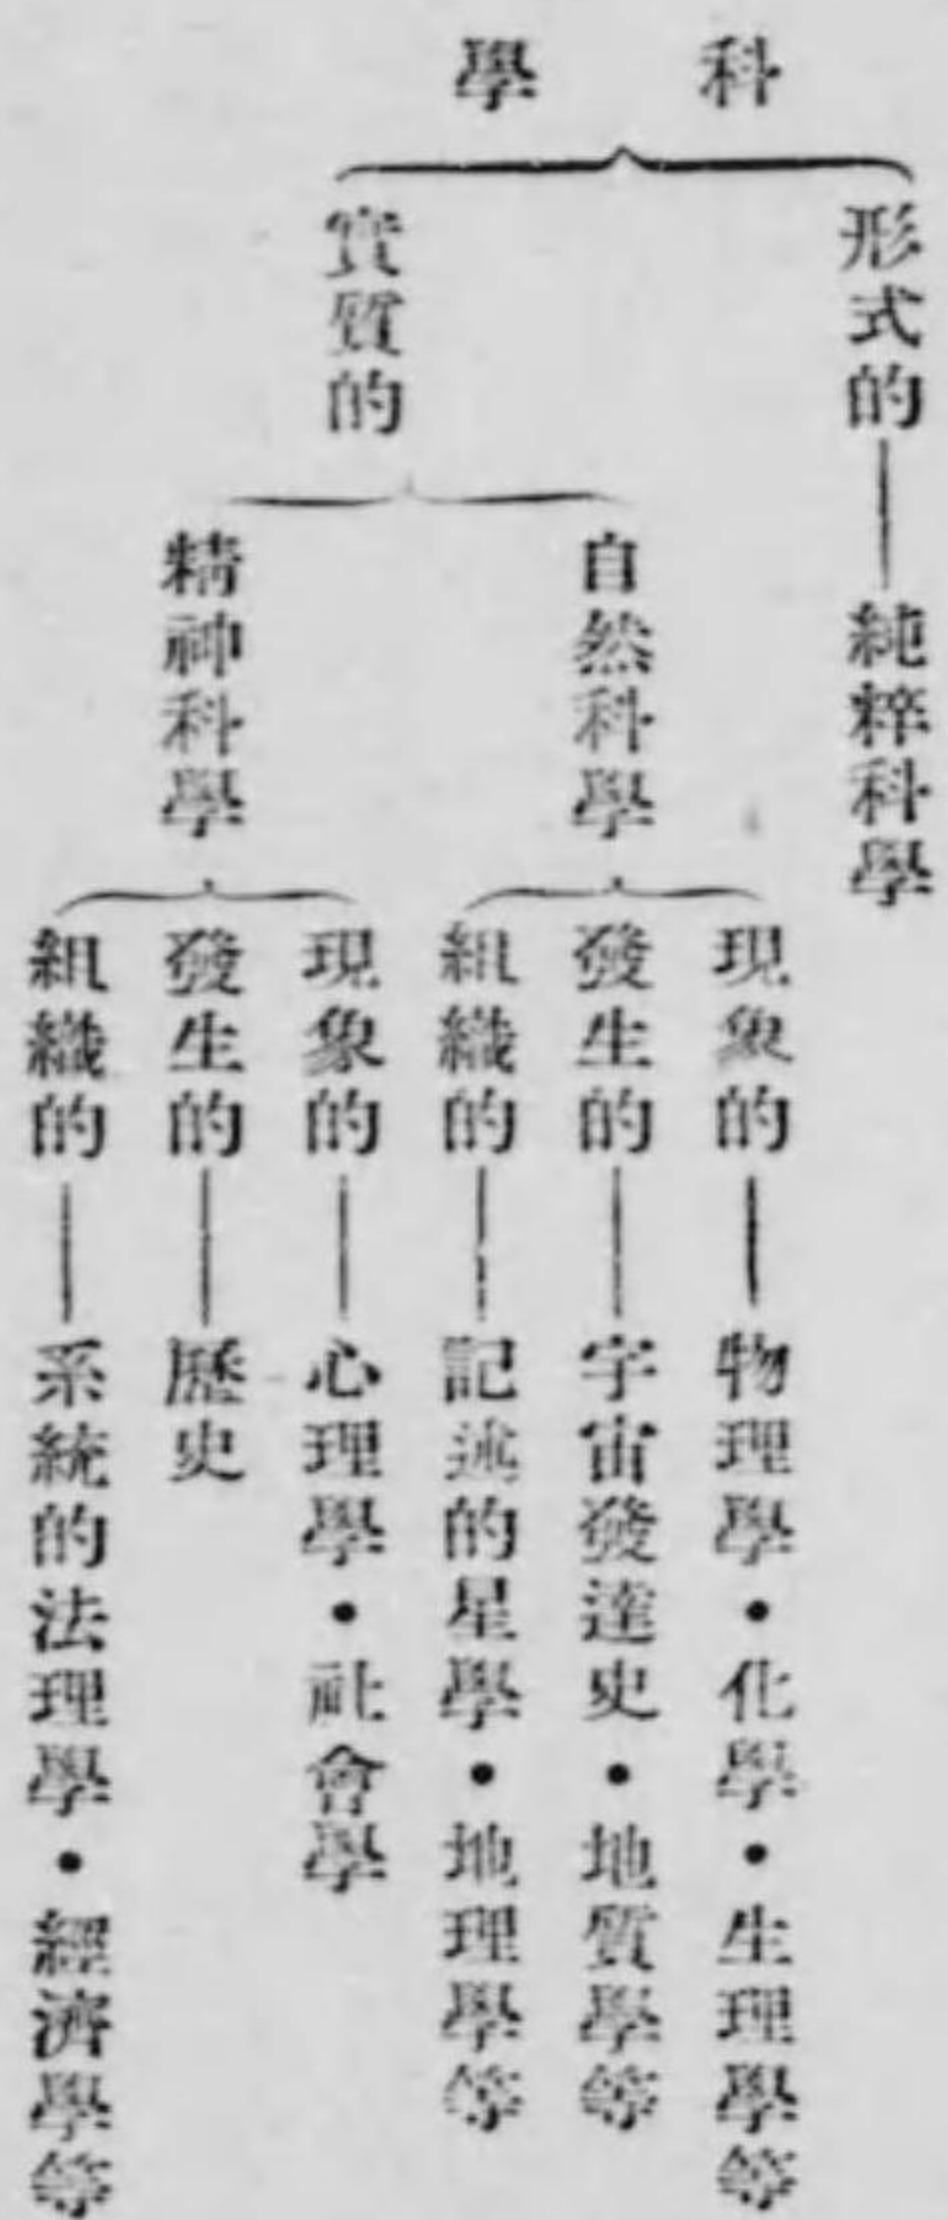 科學
形式的——純粹科學
實質的
自然科學
現象的——物理學・化學・生理學等
發生的——宇宙發達史・地質學等
組織的——記述的星學・地理學等
精神科學
現象的——心理學・社會學
發生的——歷史
組織的——系統的法理學・經濟學等